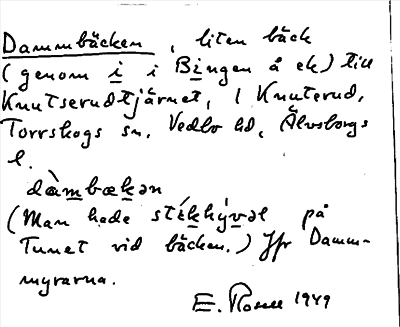 Dammbäcken, liten bäck
(genom i i Bingen å ek) till
Knutserudtjärnet, i Knuterud,
Torrskogs sn, Vedbo hd, Älvsborgs
l.
dàmbækən
(Man hade stékhývəl på
Tunet vid bäcken.) Jfr Damm-
myrarna.
E. Rosell 1949